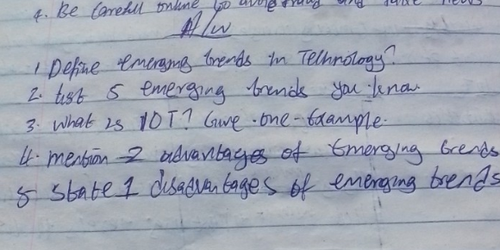 4. Be Careful online to avoid fraud and fake news
A/W
1 Define emerging trends in Technology?
2. List 5 emerging trends you know
3. what is IOT? Give one-Example.
4. mention 2 advantages of Emerging trends
5 State 1 disadvantages of emerging trends